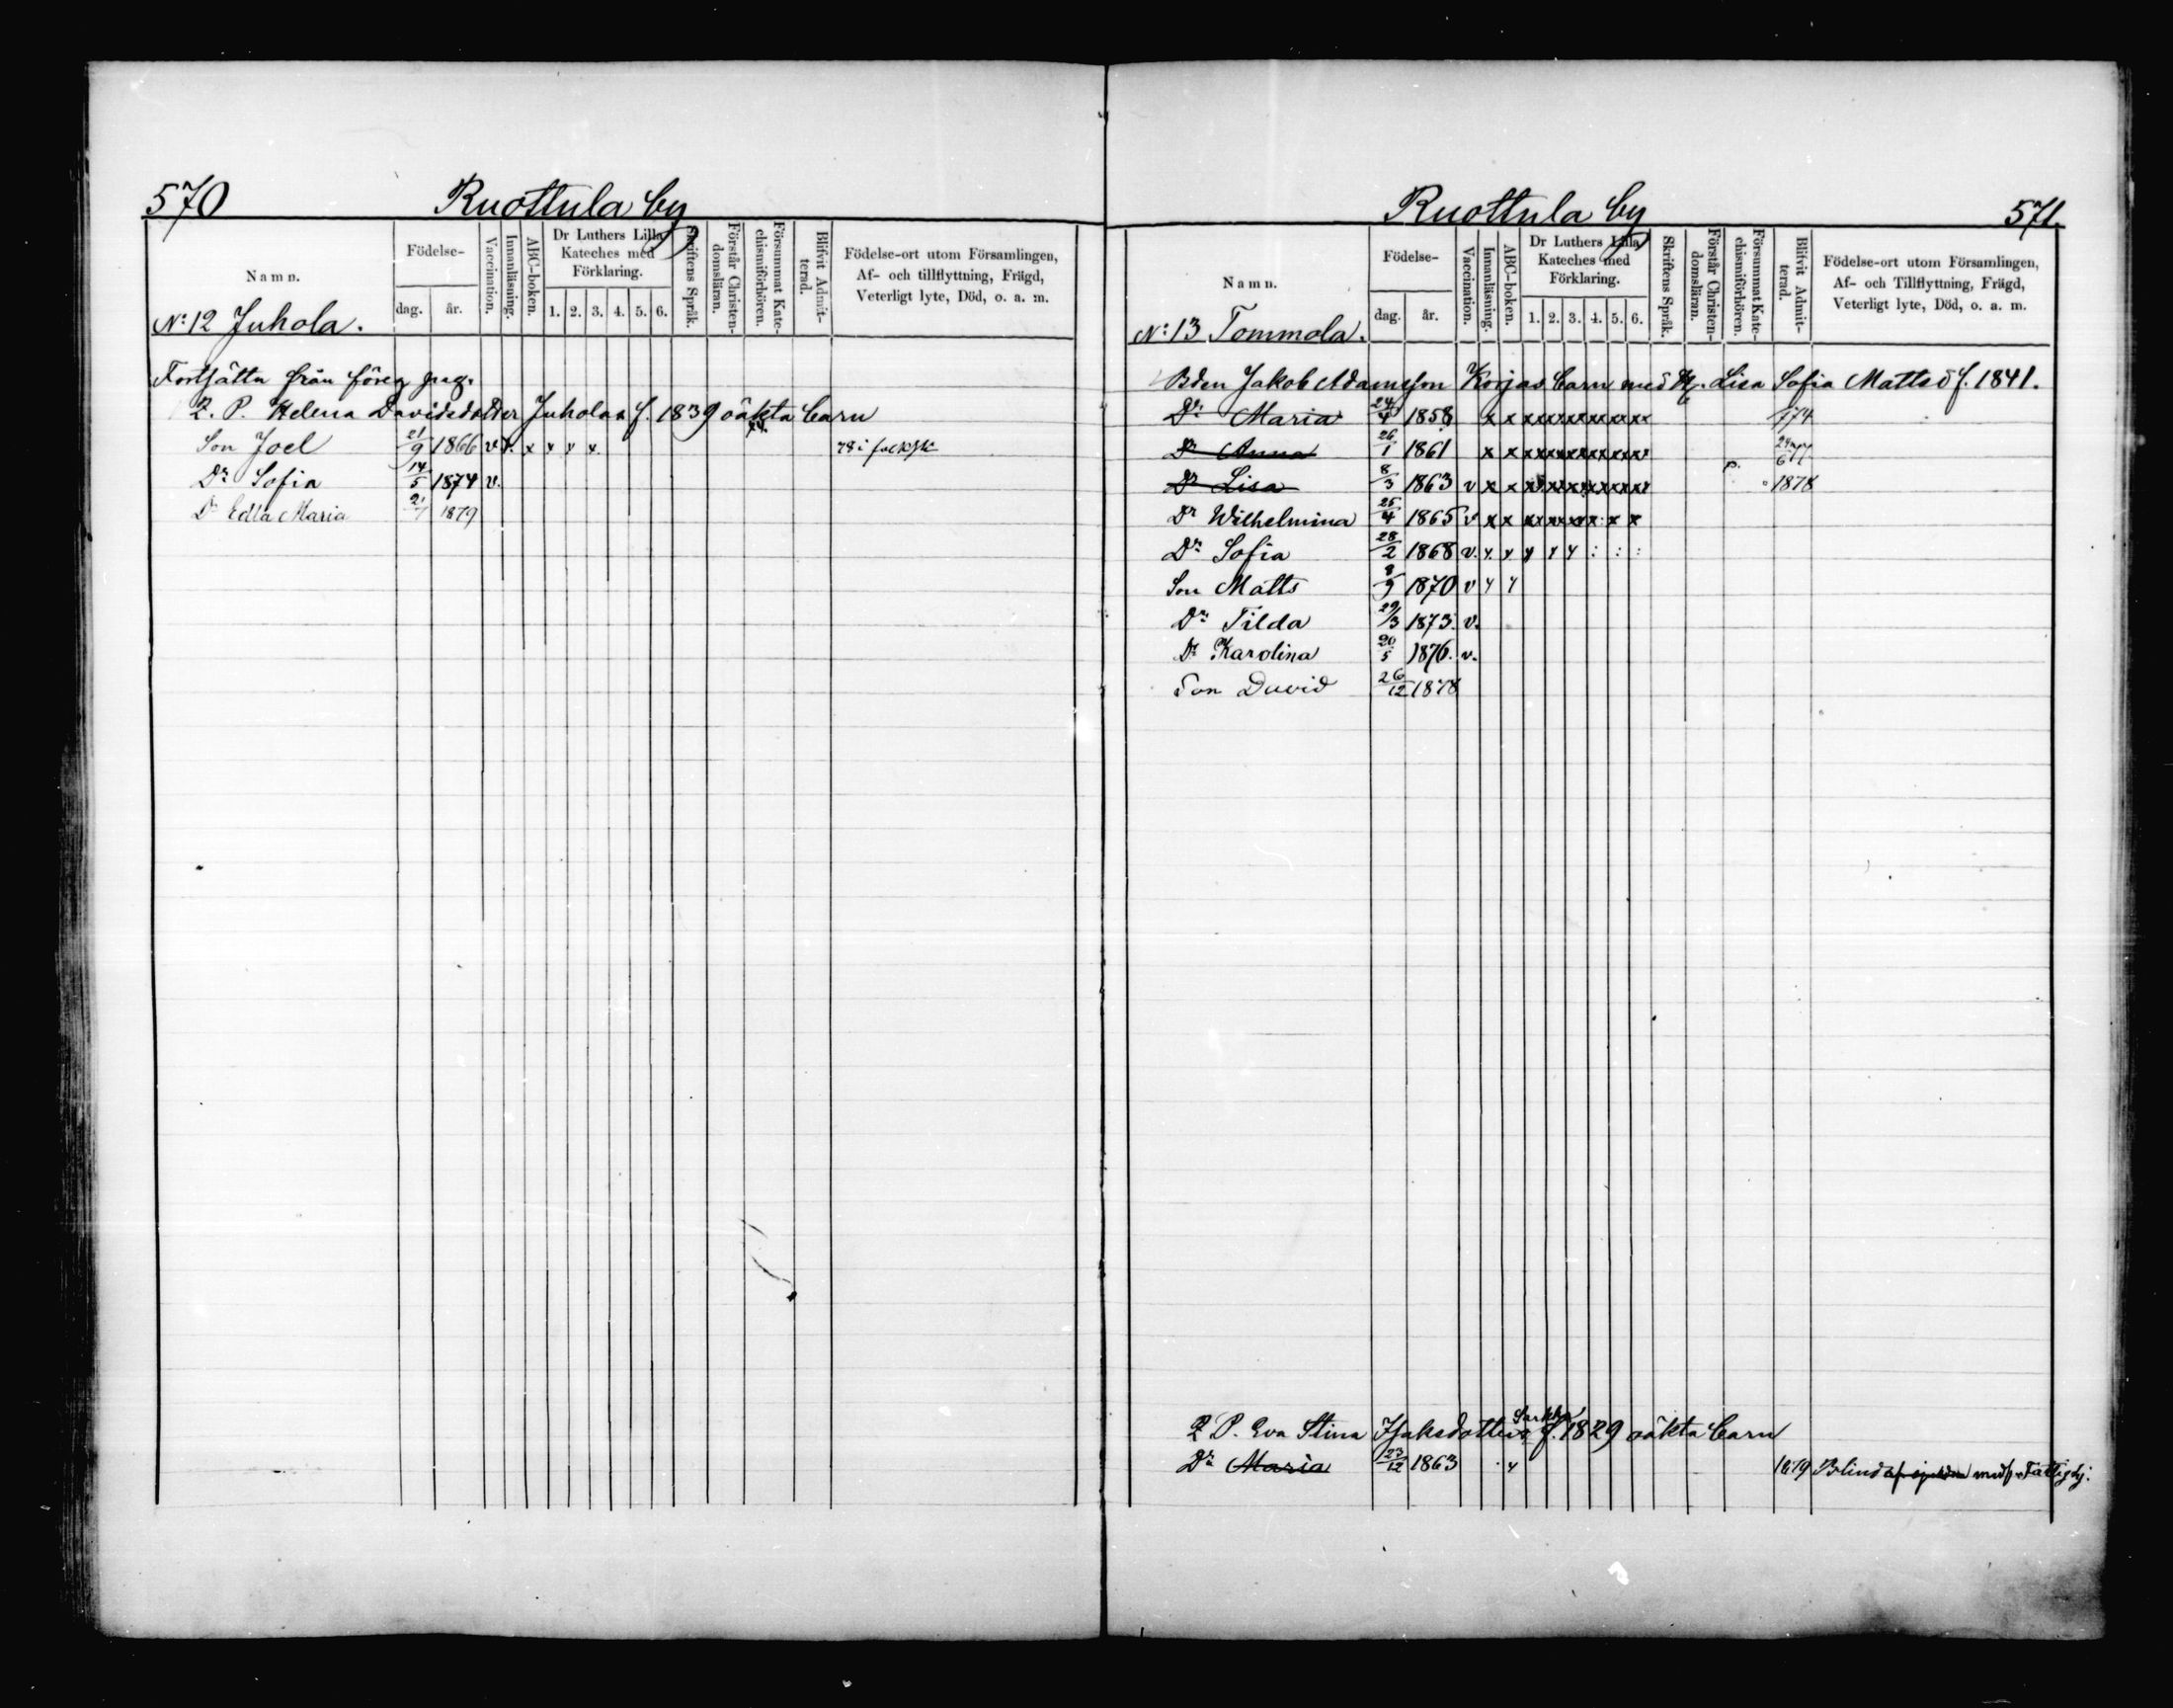 570 Ruottula by
Namn. Födelse- dag. år. Vaccination. Innanläsning. ABC-boken. Dr Luthers Lilla Kateches med Förklaring. 1. 2. 3. 4. 5. 6. Skriftens Språk. Förstår Christen-domsläran. Försummat Kate-chismiförhören. Blifvit Admit-terad. Födelse-ort utom Församlingen, Af- och tillflyttning, Frägd, Veterligt lyte, Död, o. a. m.
N:12 Juhola.
Fortsättn från föreg pag.
Q. P. Helena Davidsdotter Juholas f. 1839 oäkta barn
Son Joel 21/9 1866 v v. x x y x 78 i
Dr Sofia 14/5 1874 v.
Dr Edla Maria 21/7 1879
Ruottula by 571.
Namn. Födelse- dag. år. Vaccination. Innanläsning. ABC-boken. Dr Luthers Lilla Kateches med Förklaring. 1. 2. 3. 4. 5. 6. Skriftens Språk. Förstår Christen-domsläran. Försummat Kate-chismiförhören. Blifvit Admit-terad. Födelse-ort utom Församlingen, Af- och Tillflyttning, Frägd, Veterligt lyte, Död, o. a. m.
N:13 Tommola.
Bden Jakob Adamsson Korjas barn med H. Lisa Sofia Mattsd f. 1841.
Dr Maria 24/4 1858 x x xx xx xx xx xx xx 174
Dr Anna 26/1 1861 x x xx xx xx xx xx xx
Dr Lisa 8/3 1863 v x x xx xx xx xx xx xx 1878
Dr Wilhelmina 25/4 1865 v x x xx xx xx x x x
Dr Sofia 28/2 1868 v. y y y y y : : :
Son Matts 8/9 1870 v y y
Dr Tilda 29/3 1873. v.
Dr Karolina 20/5 1876. v.
Son David 26/12 1878
Q P. Eva Stina Isaksdotters f. 1829 oäkta barn
Dr Maria 23/12 1863 . y 1879 Blind